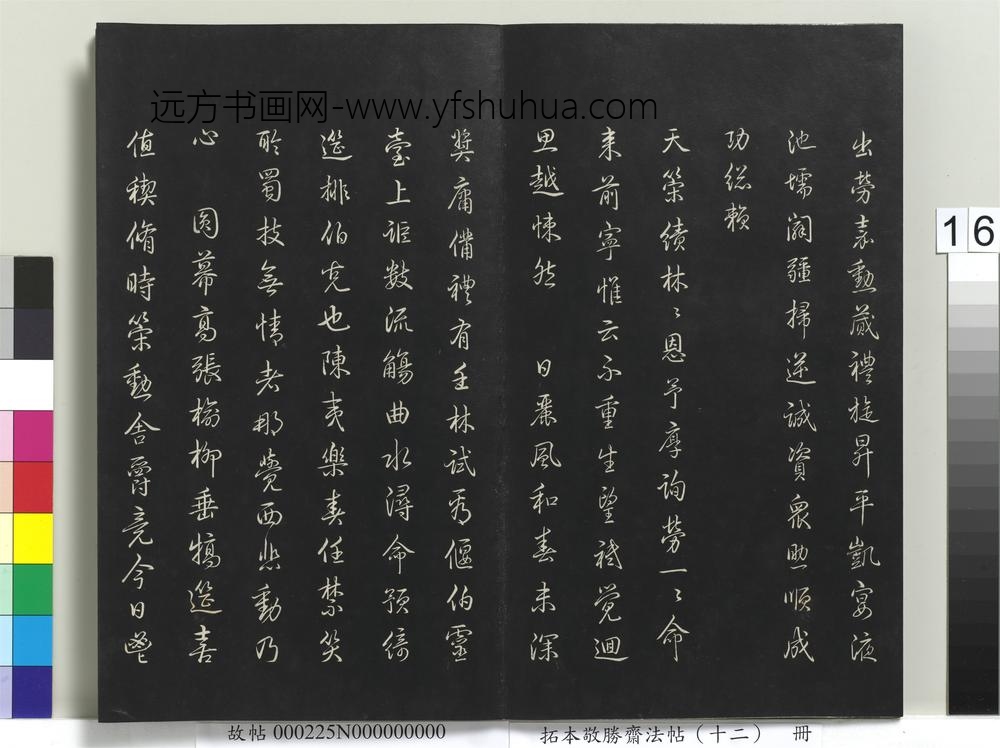 远方书画网-www.yfshuhua.com
出勞嘉勳蕆禮旋昇平凱宴液
池壖闢疆掃逆誠資眾助順成
功總賴
天策績林〻恩予厚詢勞一〻命
来前寧惟云不重生望祗覺迴
思越悚然 日麗風和春未深
奬庸備禮有壬林試看偃伯靈
臺上詎數流觴曲水潯命預綺
筵排伯克也陳夷樂奏任禁笑
聆蜀技無情者那覺西悲動乃
心 圓幕高張榆柳垂犒筵喜
值稧脩時策勳舍爵竟今日
16
故帖 000225N000000000
拓本敬勝齋法帖（十二） 冊